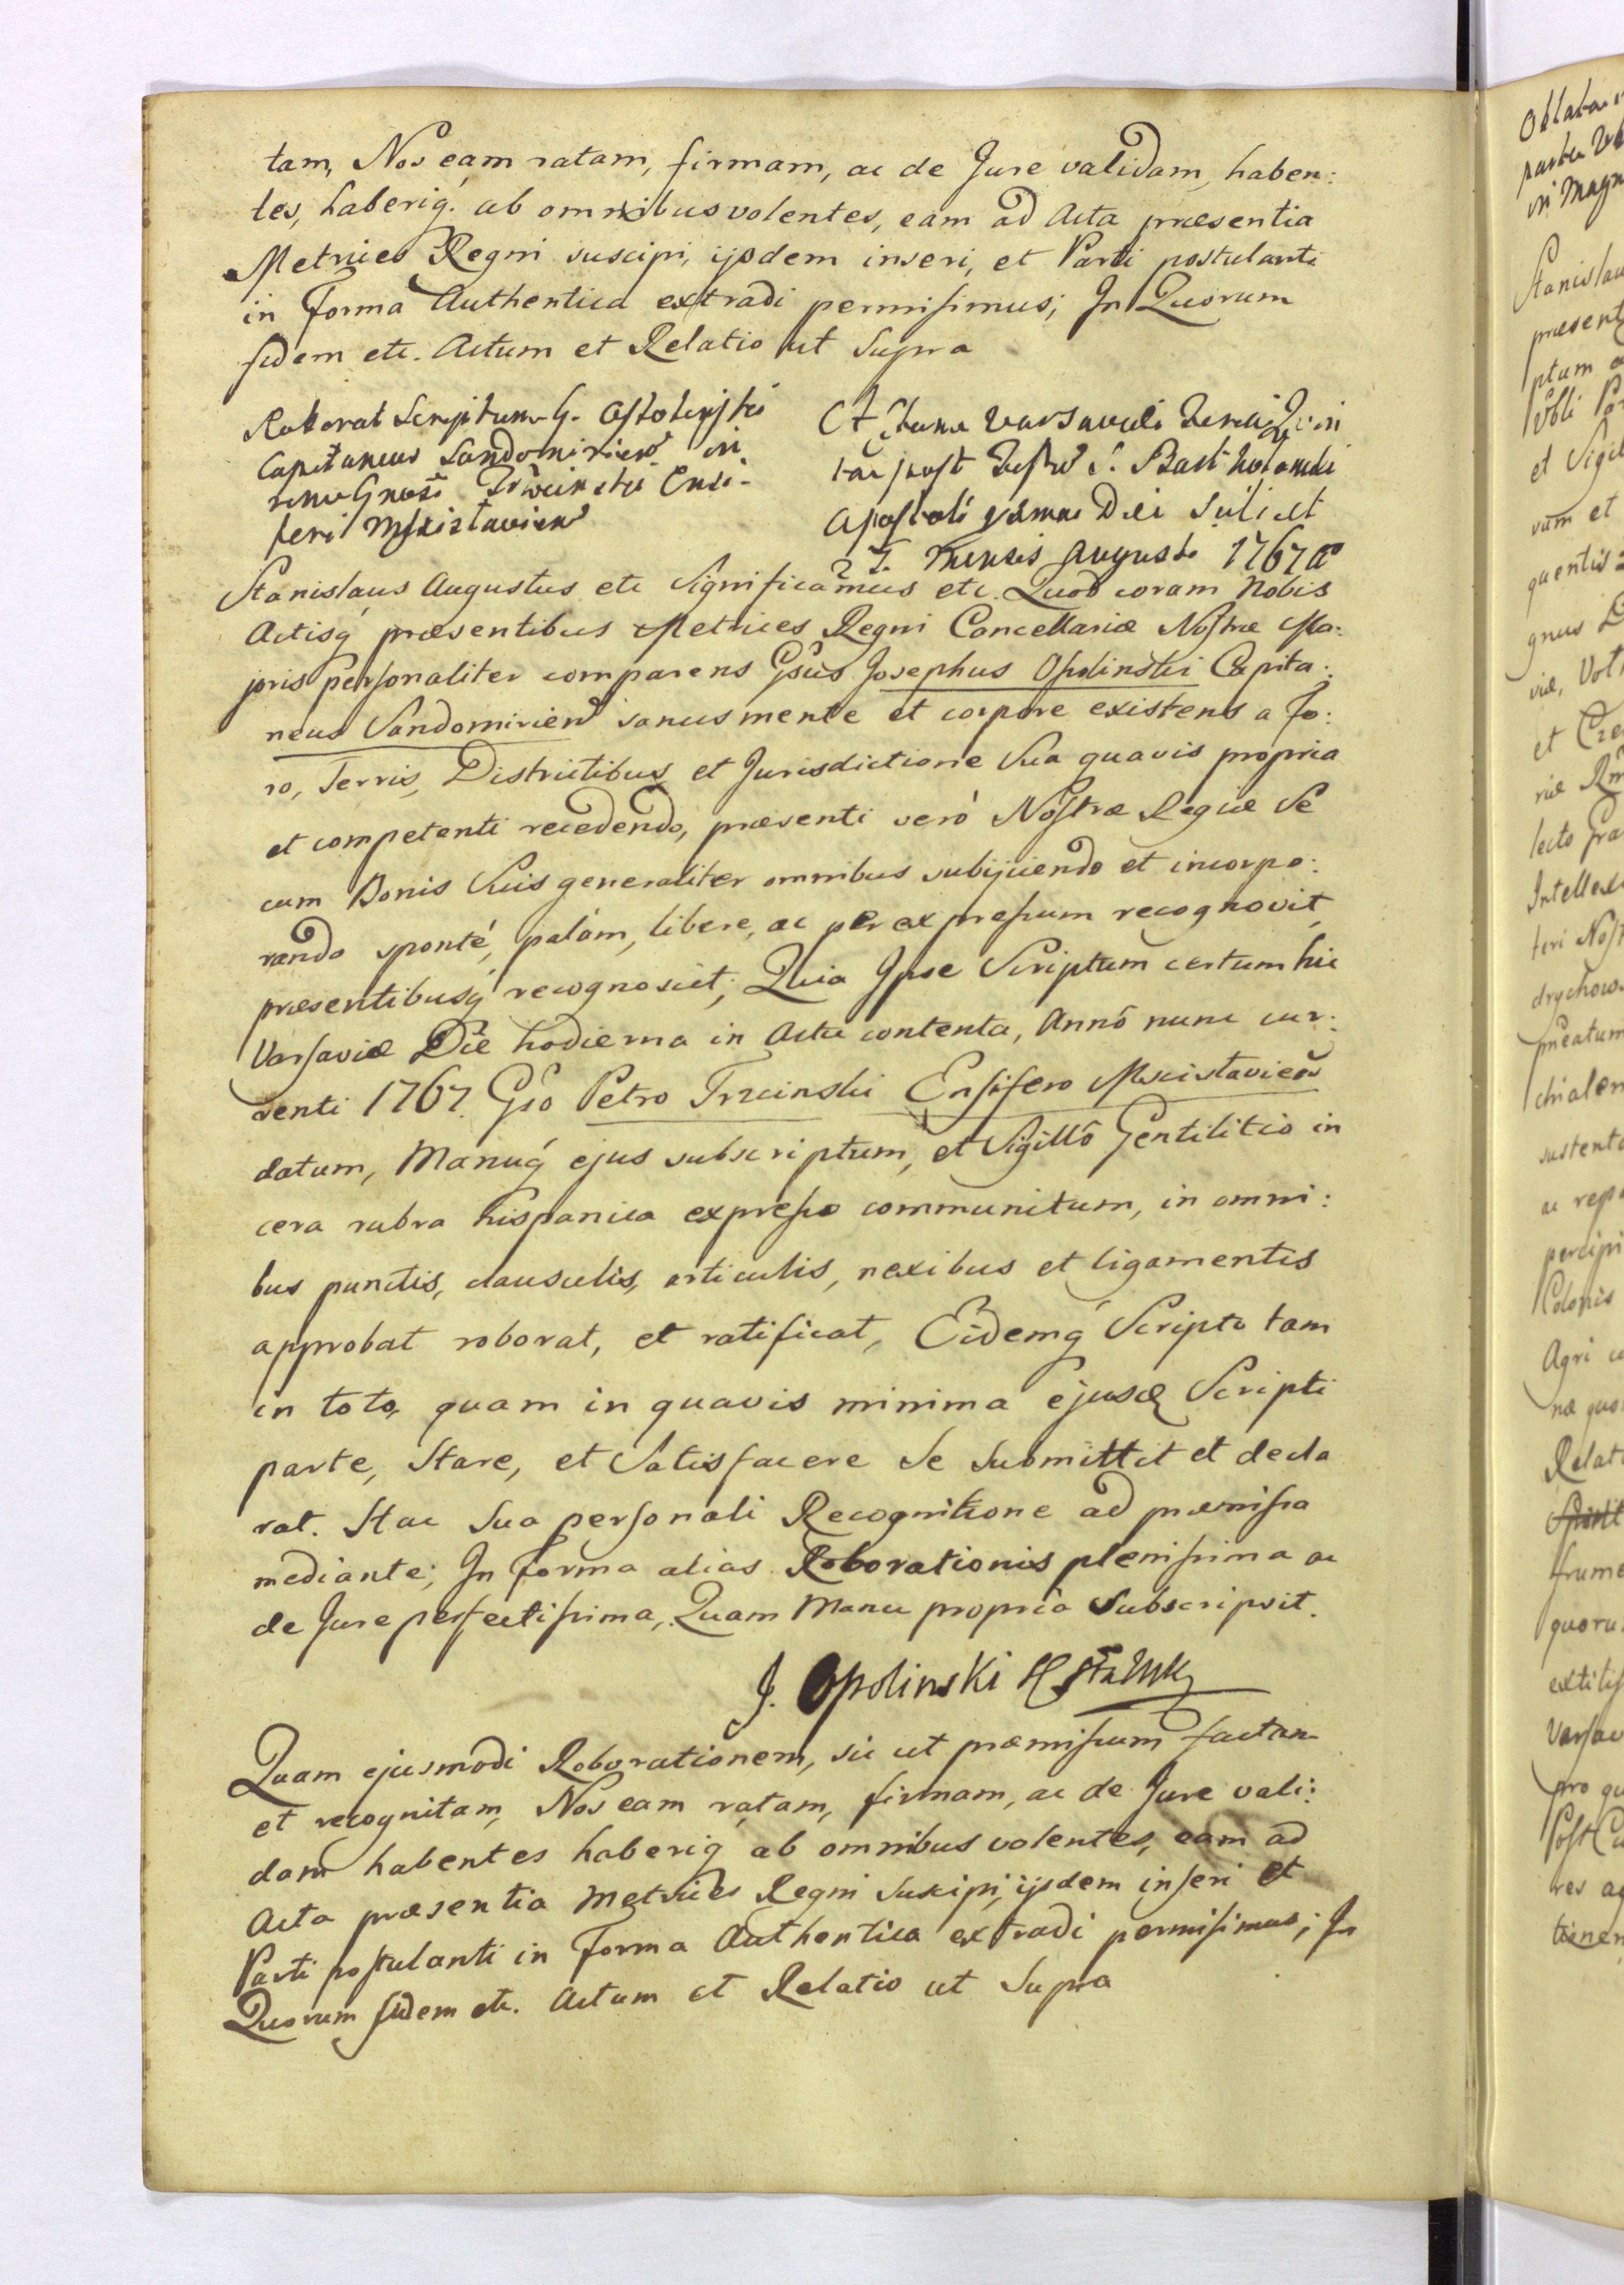 tam, Nos eam ratam, firmam, ac de Jure validam, haben:
tes, haberiq́. ab omnibus volentes, eam ad Acta præsentia
Metrices Regni suscipi, ijsdem inseri, et Parti postulanti
in Forma Authentica extradi permisimus; In Quorum
fidem etc. Actum et Relatio ut Supra
Roborat Scriptum G.
Capitaneus Sandomirien in
rem Gnosi Ensi-
feri Mscislavien
Actum Varsaviæ Feria
post Festum S. Bartholomæi
Apostoli proxima Die scilicet
27 Mensis Augusti 1767 aº
Stanislaus Augustus etc Significamus etc. Quod coram Nobis
Actisq́ præsentibus Metrices Regni Cancellariæ Nostræ Ma:
joris personaliter comparens Gsus Josephus Opolinski Capita:
neus Sandomirien sanus mente et corpore existens a Fo:
ro, Terris, Districtibus et Jurisdictione Sua quavis propria
et competenti recedendo, præsenti verò Nostræ Regiæ Se
cum Bonis Suis generaliter omnibus subijciendo et incorpo:
rando sponté, palám, libere, ac per expressum recognovit,
præsentibusq́ recognoscit; Quia Ipse Scriptum certum hic
Varsaviæ Die hodierna in Actu contenta, Annô nunc cur:
renti 1767. Gso Petro Trzcinski Ensifero Mscislavien
datum, Manuq́ ejus subscriptum, et Sigillô Gentilitio in
cera rubra hispanica expresso communitum, in omni:
bus punctis, clausulis, articulis, nexibus et ligamentis
approbat roborat, et ratificat, Eidemq́ Scripto tam
in toto, quam in quavis minima ejusd Scripti
parte, Stare, et Satisfacere Se Submittit et decla
rat. Hac Sua personali Recognitione ad præmissa
mediante; In Forma alias Roborationis plenissima ac
de Jure perfectissima, Quam Manu propria Subscripsit.
J. Opolinski
Quam ejusmodi Roborationem, sic ut præmissum factam
et recognitam, Nos eam ratam, firmam, ac de Jure vali:
dam habentes haberiq́ ab omnibus volentes, eam ad
Acta præsentia Metrices Regni Suscipi, ijsdem inseri et
Parti postulanti in Forma Authentica extradi permisimus; In
Quorum fidem etc. Actum et Relatio ut Supra
Oblata
parte
in Magn
Stanislau
præsent
ptum
et Sigil
rum et
quentis
gnus
viæ,
et
riæ
lecto Gra
Intellexi
teri Nost
drychow
chialem
sustent
ac rep
percipi
Colonis
Agri
næ quo
Relat
frume
quoru
extitis
Varsav
pro qu
Post
res
tienen